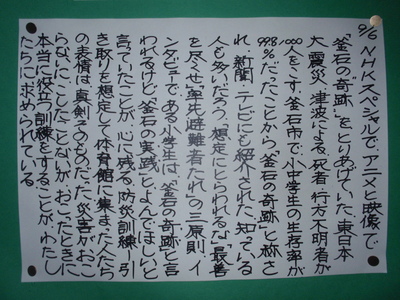 9/6 NHKスペシャルで、アニメと映像で
釜石の"奇跡"をとりあげていた。東日本
大震災・津波による、死者・行方不明者が
1000人をこす、釜石市で、小中学生の生存率が
99.8%だったことから、"釜石の奇跡"と称さ
れ、新聞・テレビにも紹介された。知っている
人も多いだろう。「想定にとらわれるな」「最善
を尽せ」「率先避難者たれ」の三原則。イ
ンタビューで、ある小学生は、"釜石の奇跡"と言
われるけど、"釜石の実践"とよんでほしいと
言っていたことが、心に残る。防災訓練ー引
き取りを想定して体育館に集まった人たち
の表情は真剣そのものだった。災害がおこ
らないにこしたことないが、おこったときに
本当に役立つ訓練をすることが、わたし
たちに求められている。